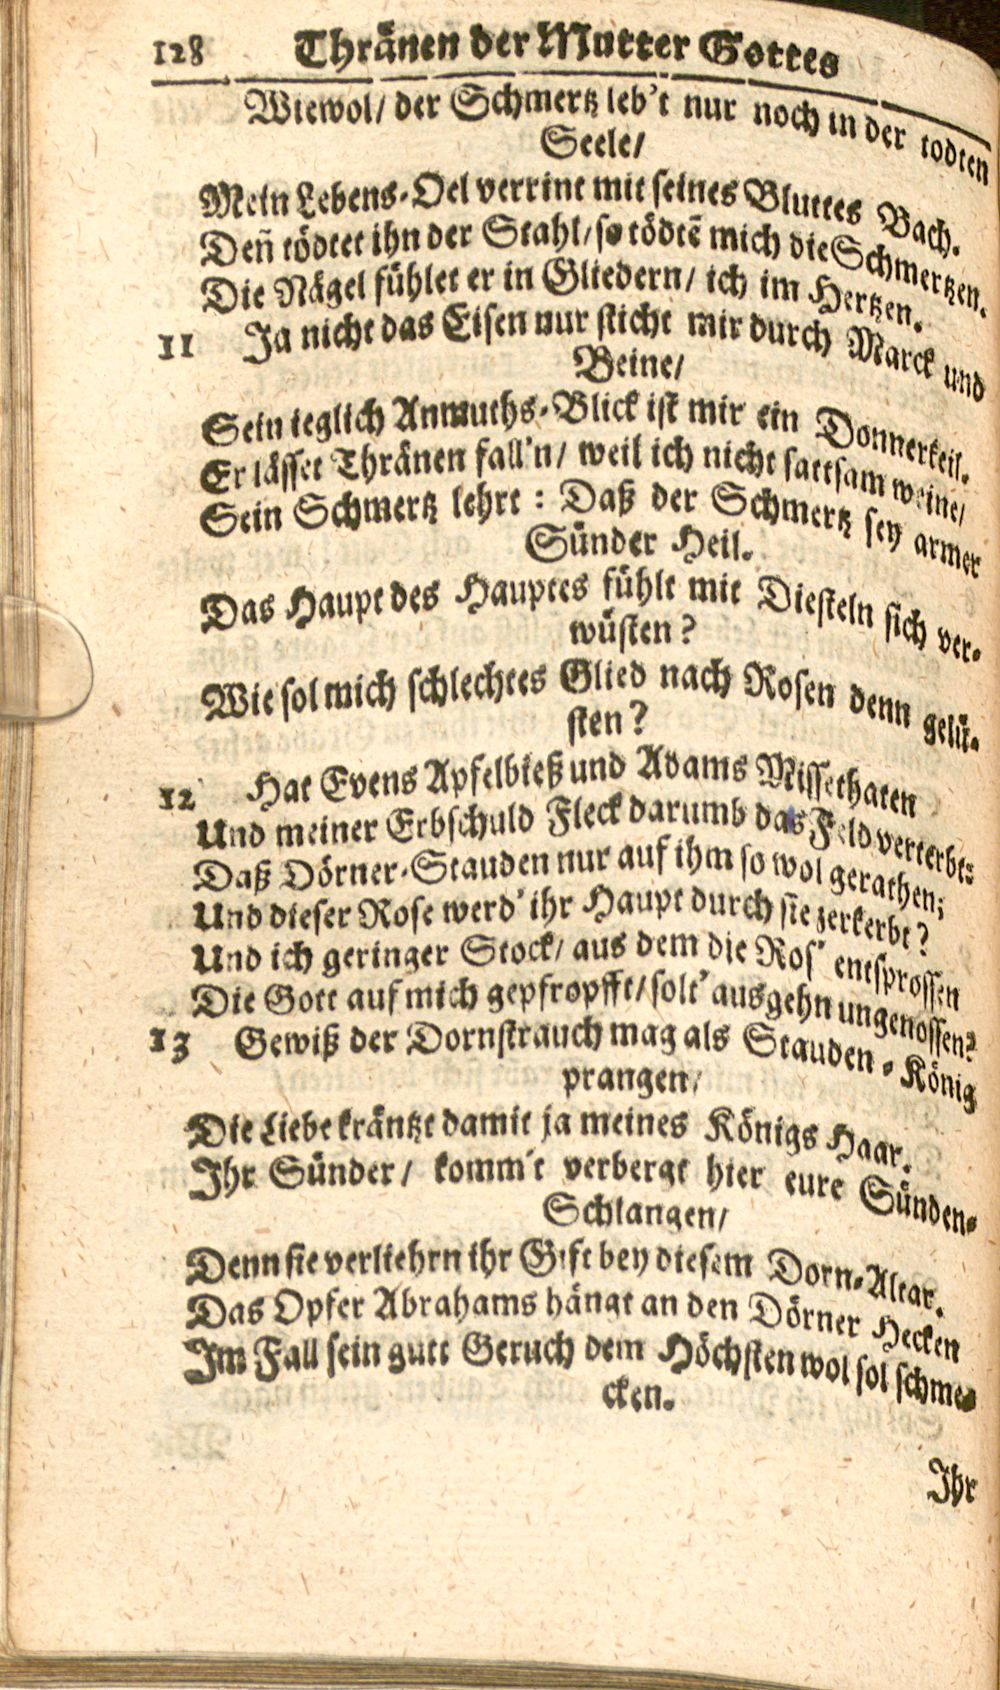 128 Thränen der Mutter Gottes
Wiewol/ der Schmertz leb't nur noch in der todten
Seele/
Mein Lebens-Oel verrint mit seines Bluttes Bach.
Deñ tödtet ihn der Stahl/ so tödtē mich die Schmertzen.
Die Nägel fühlet er in Gliedern/ ich im Hertzen.
11 Ja nicht das Eisen nur sticht mir durch Marck und
Beine/
Sein ieglich Anmuths-Blick ist mir ein Donnerkeil.
Er lässet Thränen fall'n/ weil ich nicht sattsam weine/
Sein Schmertz lehrt: Daß der Schmertz sey armer
Sünder Heil.
Das Haupt des Hauptes fühlt mit Diesteln sich ver-
wüsten?
Wie sol mich schlechtes Glied nach Rosen denn gelü-
sten?
12 Hat Evens Apfelbieß und Adams Missethaten
Und meiner Erbschuld Fleck darumb das Feld verterbt:
Daß Dörner-Stauden nur auf ihm so wol gerathen;
Und dieser Rose werd' ihr Haupt durch sie zerkerbt?
Und ich geringer Stock/ aus dem die Ros' entsprossen
Die Gott auf mich gepfropfft/ solt' ausgehn ungenossen?
13 Gewiß der Dornstrauch mag als Stauden-König
prangen/
Die Liebe kräntzt damit ja meines Königs Haar.
Ihr Sünder/ komm't verbergt hier eure Sünden-
Schlangen/
Denn sie verliehrn ihr Gift bey diesem Dorn-Altar.
Das Opfer Abrahams hängt an den Dörner Hecken
Im Fall sein gutt Geruch dem Höchsten wol sol schme-
cken.
Ihr